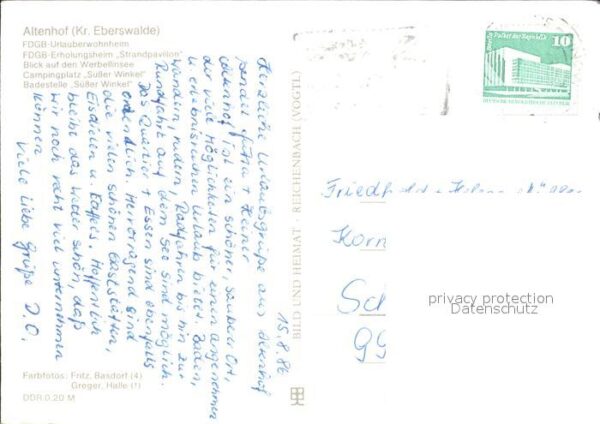 Altenhof (Kr. Eberswalde)
FDGB-Urlauberwohnheim
FDGB-Erholungsheim „Strandpavillon"
Blick auf den Werbellinsee
Campingplatz „Süßer Winkel"
Badestelle „Süßer Winkel"
15.8.86
Herzliche Urlaubsgrüße aus Altenhof
Jutta + Heiner
Altenhof ist ein schöner, sauberer Ort,
der viele Möglichkeiten für einen angenehmen
u. erlebnisreichen Urlaub bietet. Baden,
wandern, rudern, Radfahren bis hin zur
Rundfahrt auf dem See sind möglich.
Das Quartier + Essen sind ebenfalls
ordentlich. Hervorragend sind
die vielen schönen Gaststätten,
Eisdielen u. Kaffees. Hoffentlich
bleibt das Wetter schön, daß
wir noch recht viel unternehmen
können
Viele liebe Grüße D. O.
Farbfotos: Fritz, Basdorf (4)
Greger, Halle (1)
DDR 0,20 M
BILD UND HEIMAT · REICHENBACH (VOGTL)
10
Palast der Republik
DEUTSCHE DEMOKRATISCHE REPUBLIK
Korn
Sch
99
privacy protection
Datenschutz